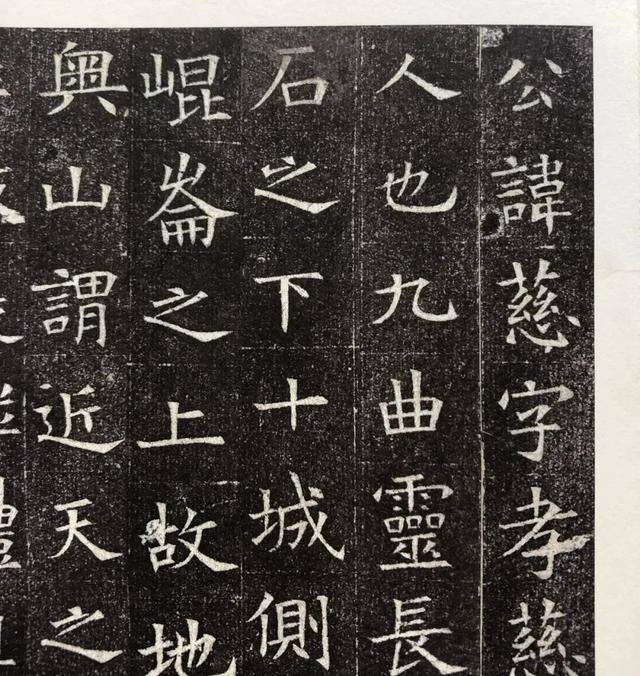 公諱慈字孝慈
人也九曲靈長
石之下十城側
崐崘之上故地
奥山謂近天之